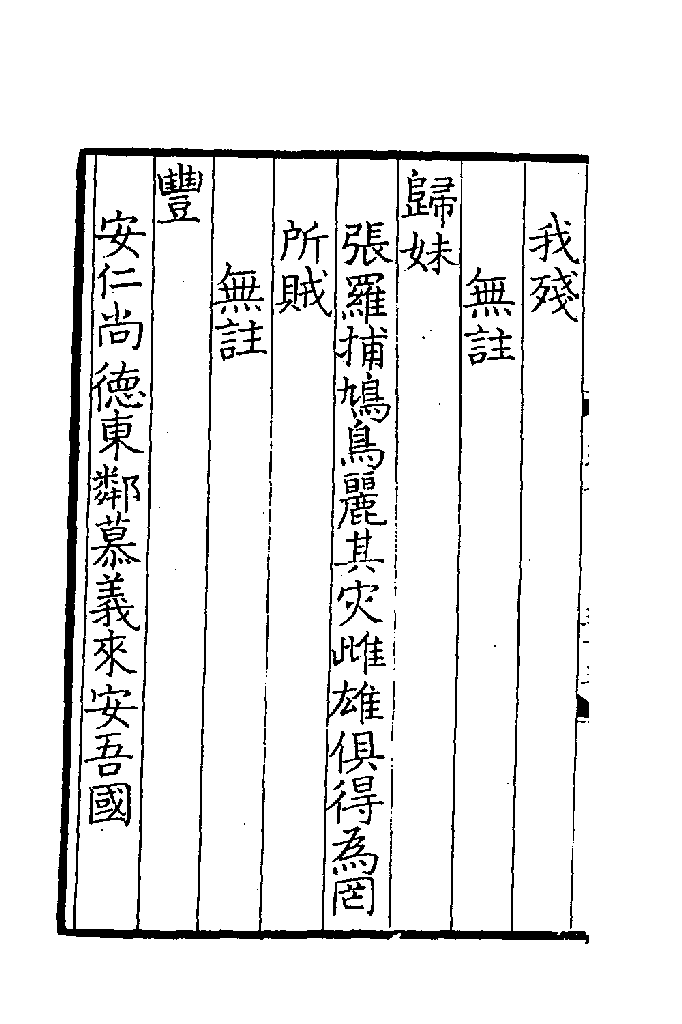 我殘
無註
歸妹
張羅捕鳩鳥麗其灾雌雄俱得為罔
所賊
無註
豐
安仁尚德東鄰慕義來安吾國